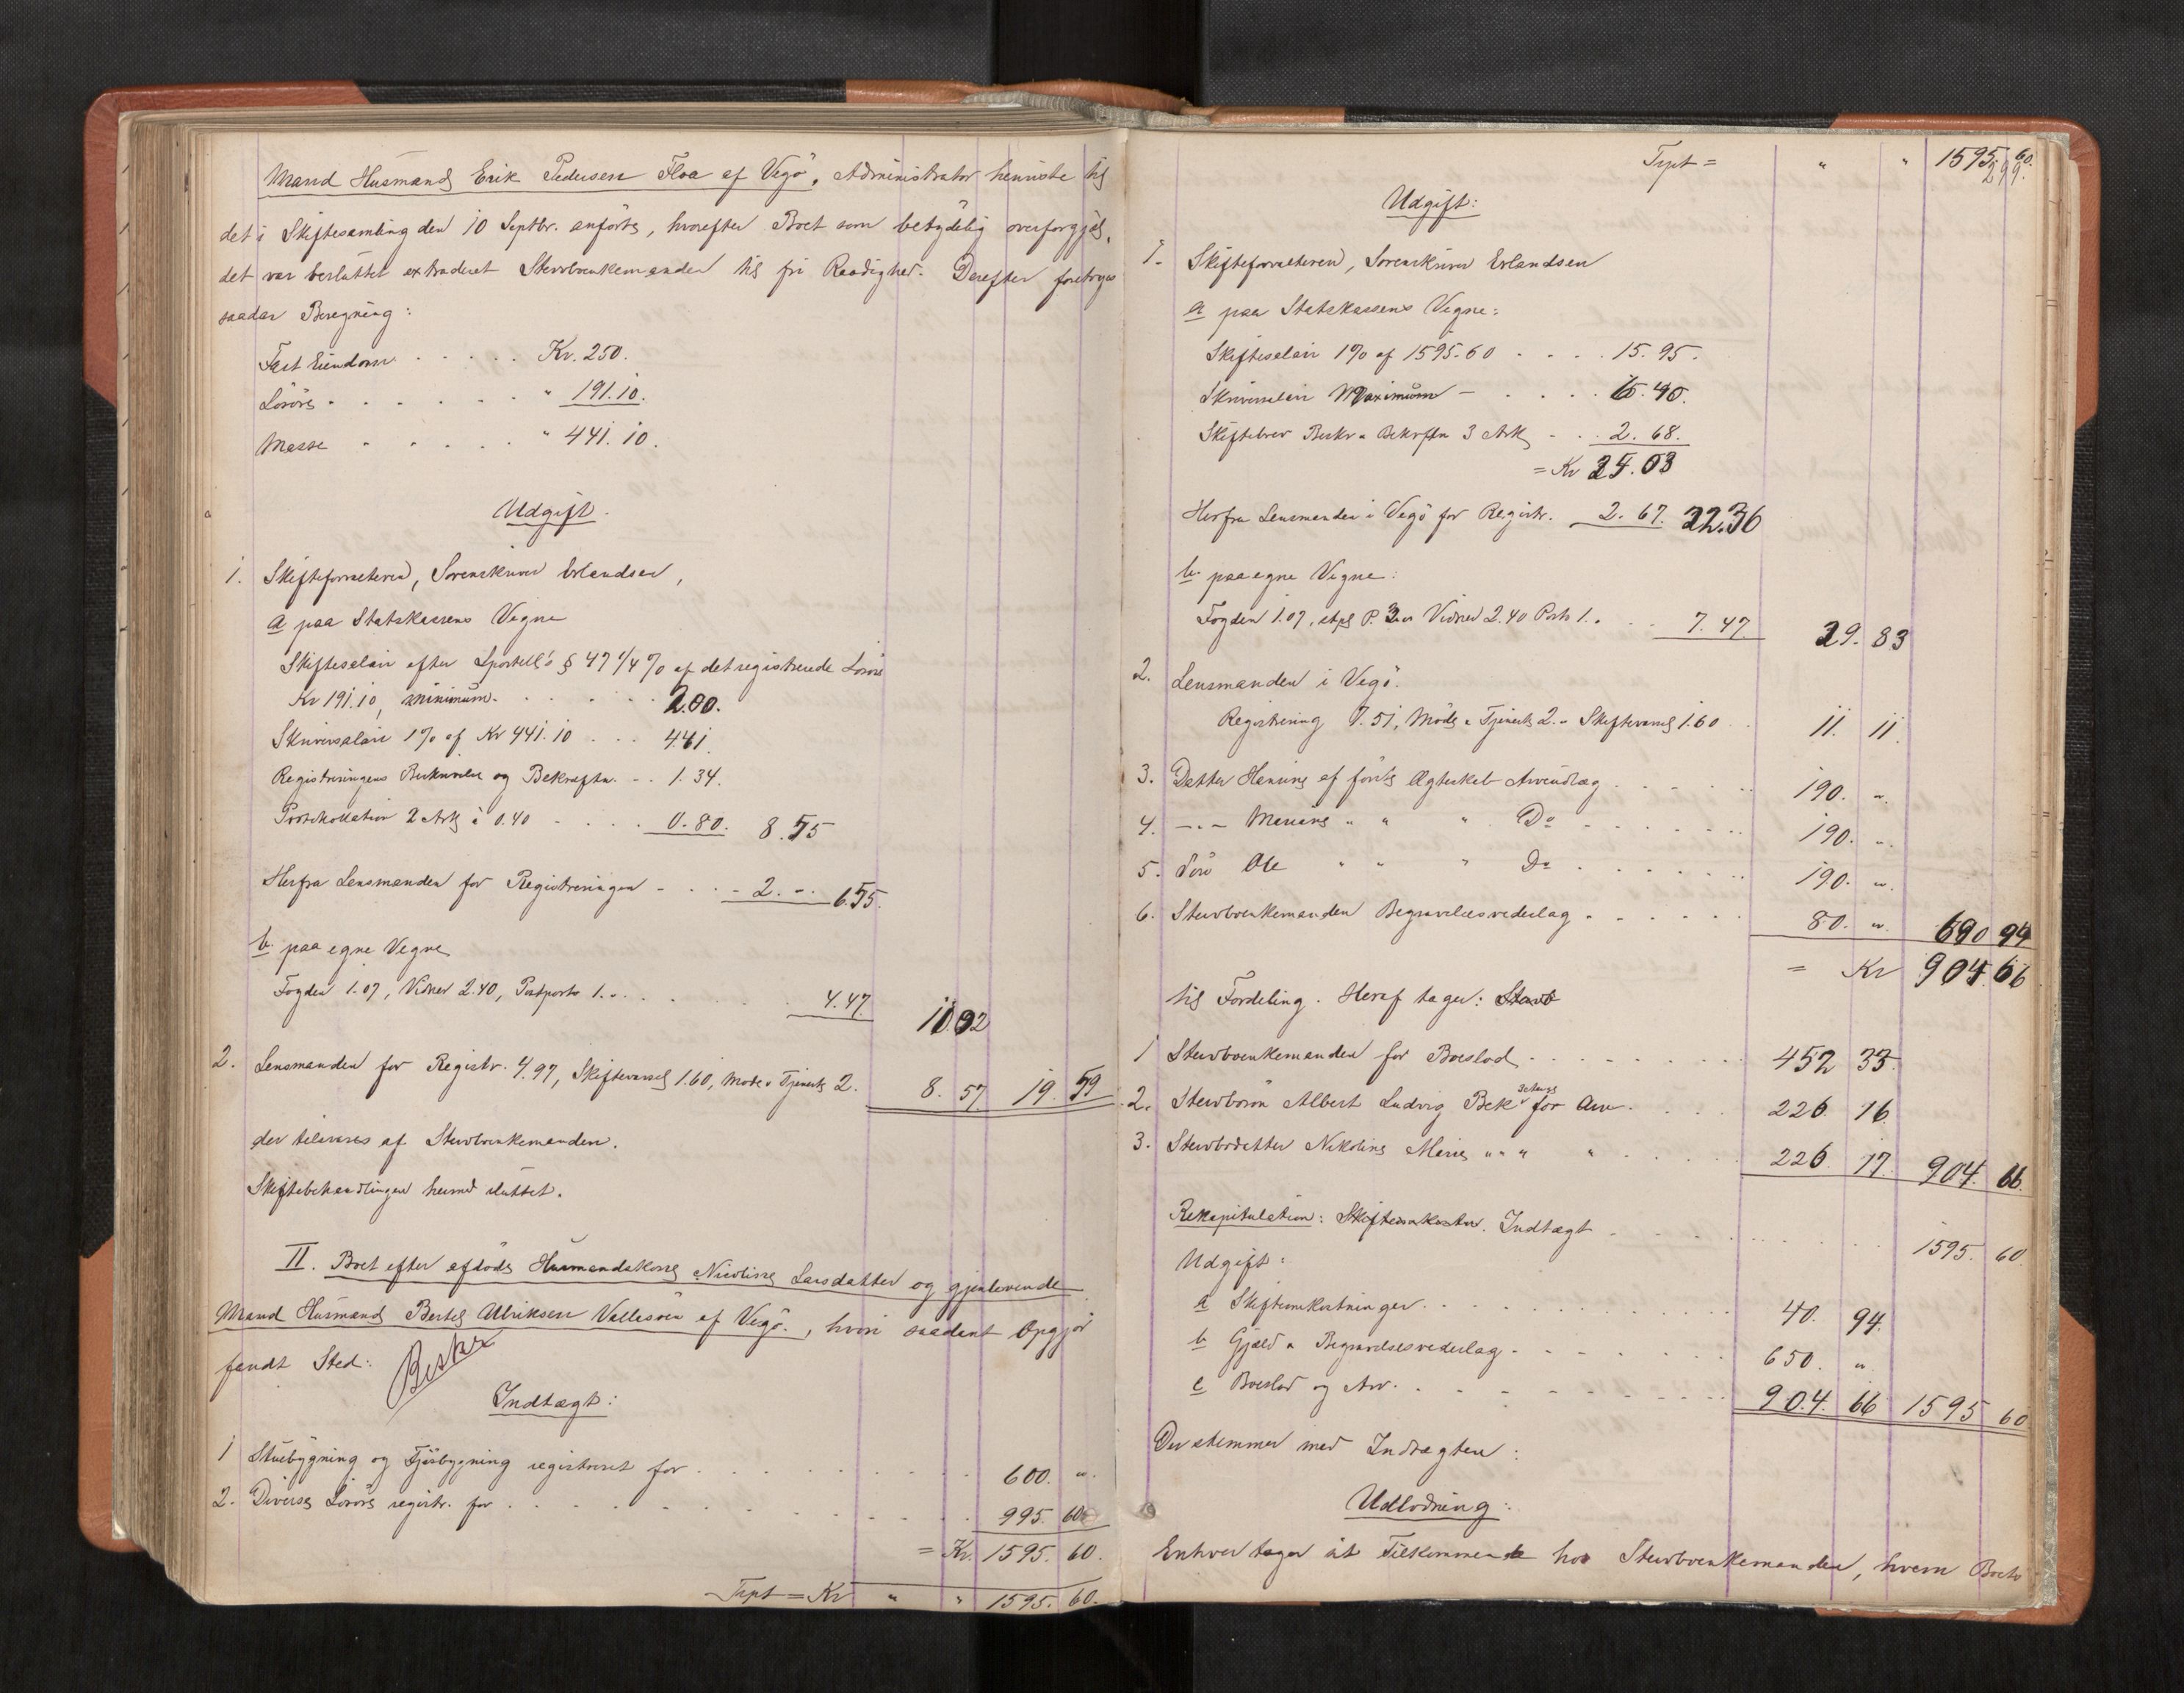 Mand Husmand Erik Pedersen Floa af Vegö. Administrator henviste til
det i Skiftesamling den 10 Septbr. anförte, hvorefter Boet som betydelig overforgjæl,
det var besluttet extraderet Stervboenkemanden til fri Raadighed. Derefter foretoges
saadan Beregning:
Fast Eiendom . . . . . Kr. 250.
Lösöre . . . . . . " 191.10.
Masse . . . . . " 441.10.
Udgift.
1. Skifteforvalteren, Sorenskriver Erlandsen,
a paa Statskassens Vegne
Skiftesalair efter Sportell's § 47 1/4 % af det registrerede Lösöre
Kr 191.10, minimum . . . . . 2.00.
Skriversalair 1 % af Kr 441.10 . . . 4.41
Registreringens Beskrivelse og Bekræftn. - . 1.34.
Protokollation 2 Ark à 0.40 . . . . 0.80. 8.55
Herfra Lensmanden for Registreringen - . . - 2. -. 6.55.
b. paa egne Vegne
Fogden 1.07, Vidner 2.40, Postporto 1. . . . . . . 4.47. 11.02
2. Lensmanden for Registr. 4.97, Skiftevarsel 1.60, Möde v Tjeneste 2. 8. 57. 19. 59
der tilsvares af Stervboenkemanden.
Skiftebehandlingen hermed sluttet.
II. Boet efter afdöde Husmandskone Nicoline Larsdatter og gjenlevende
Mand Husmand Bertel Ulriksen Vallesöen af Vegö., hvori saadant Opgjör
fandt Sted:
Beskr
Indtægt:
1 Stuebygning og Fjösbygning registreret for . . . . . . . . . 600. "
2. Diverse Lösöre registr. for . . . . . . . . . 995. 60
= Kr. 1595. 60.
Trpt = Kr " " 1595. 60.
Trpt = " " 1595. 60.
299.
Udgift:
1. Skifteforvalteren, Sorenskriver Erlandsen
a paa Statskassens Vegne:
Skiftesalair 1 % af 1595.60 . . . . 15.95.
Skriversalair Maximum - . . . . 6.40.
Skiftebrev Beskr. & Bekræftn 3 Ark - . . 2.68.
= Kr 25.03
Herfra Lensmanden i Vegö for Registr. 2.67. 22.36
b. paa egne Vegne:
Fogden 1.07, stpl P. 3. " Vidner 2.40 Porto 1. . . . 7.47. 29. 83
2. Lensmanden i Vegö.
Registrering 7.51, Möde & Tjeneste 2. " Skiftevarsel 1.60 . . 11. 11.
3. Datter Hansine af förste Ægteskab Arveudlæg . . . . . 190. "
4. -"- Mariane " " " Do . . . . . . 190. "
5. Sön Ole " " " Do . . . . . . 190. "
6. Stervboenkemanden Begravelsesvederlag . . . . . . 80. " 690 94
= Kr 904. 66
til Fordeling. Heraf tager: Stervb
1 Stervboenkemanden for Boeslod . . . . . . . . 452 33.
2. Stervbosön Albert Ludvig Bek for Arv . . . . 226. 16
3. Stervbodatter Nikoline Marie " " " " . . . . 226. 17. 904. 66.
Rekapitulation: Skifteomkostn. Indtægt . . . . . . . . . 1595. 60
Udgift:
a Skifteomkostninger . . . . . . . . . . . 40. 94.
b Gjæld & Begravelsesvederlag . . . . . . . . 650. "
c Boeslod og Arv . . . . . . . . . . 904. 66 1595 60
Der stemmer med Indtægten:
Udlodning:
Enhver tager sit Tilkommende hos Stervboenkemanden, hvem Boets